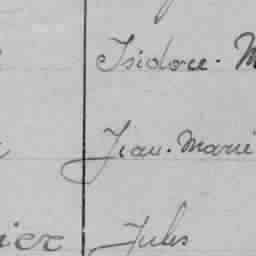 Isidore. M
Jean. Marie
ier Jules